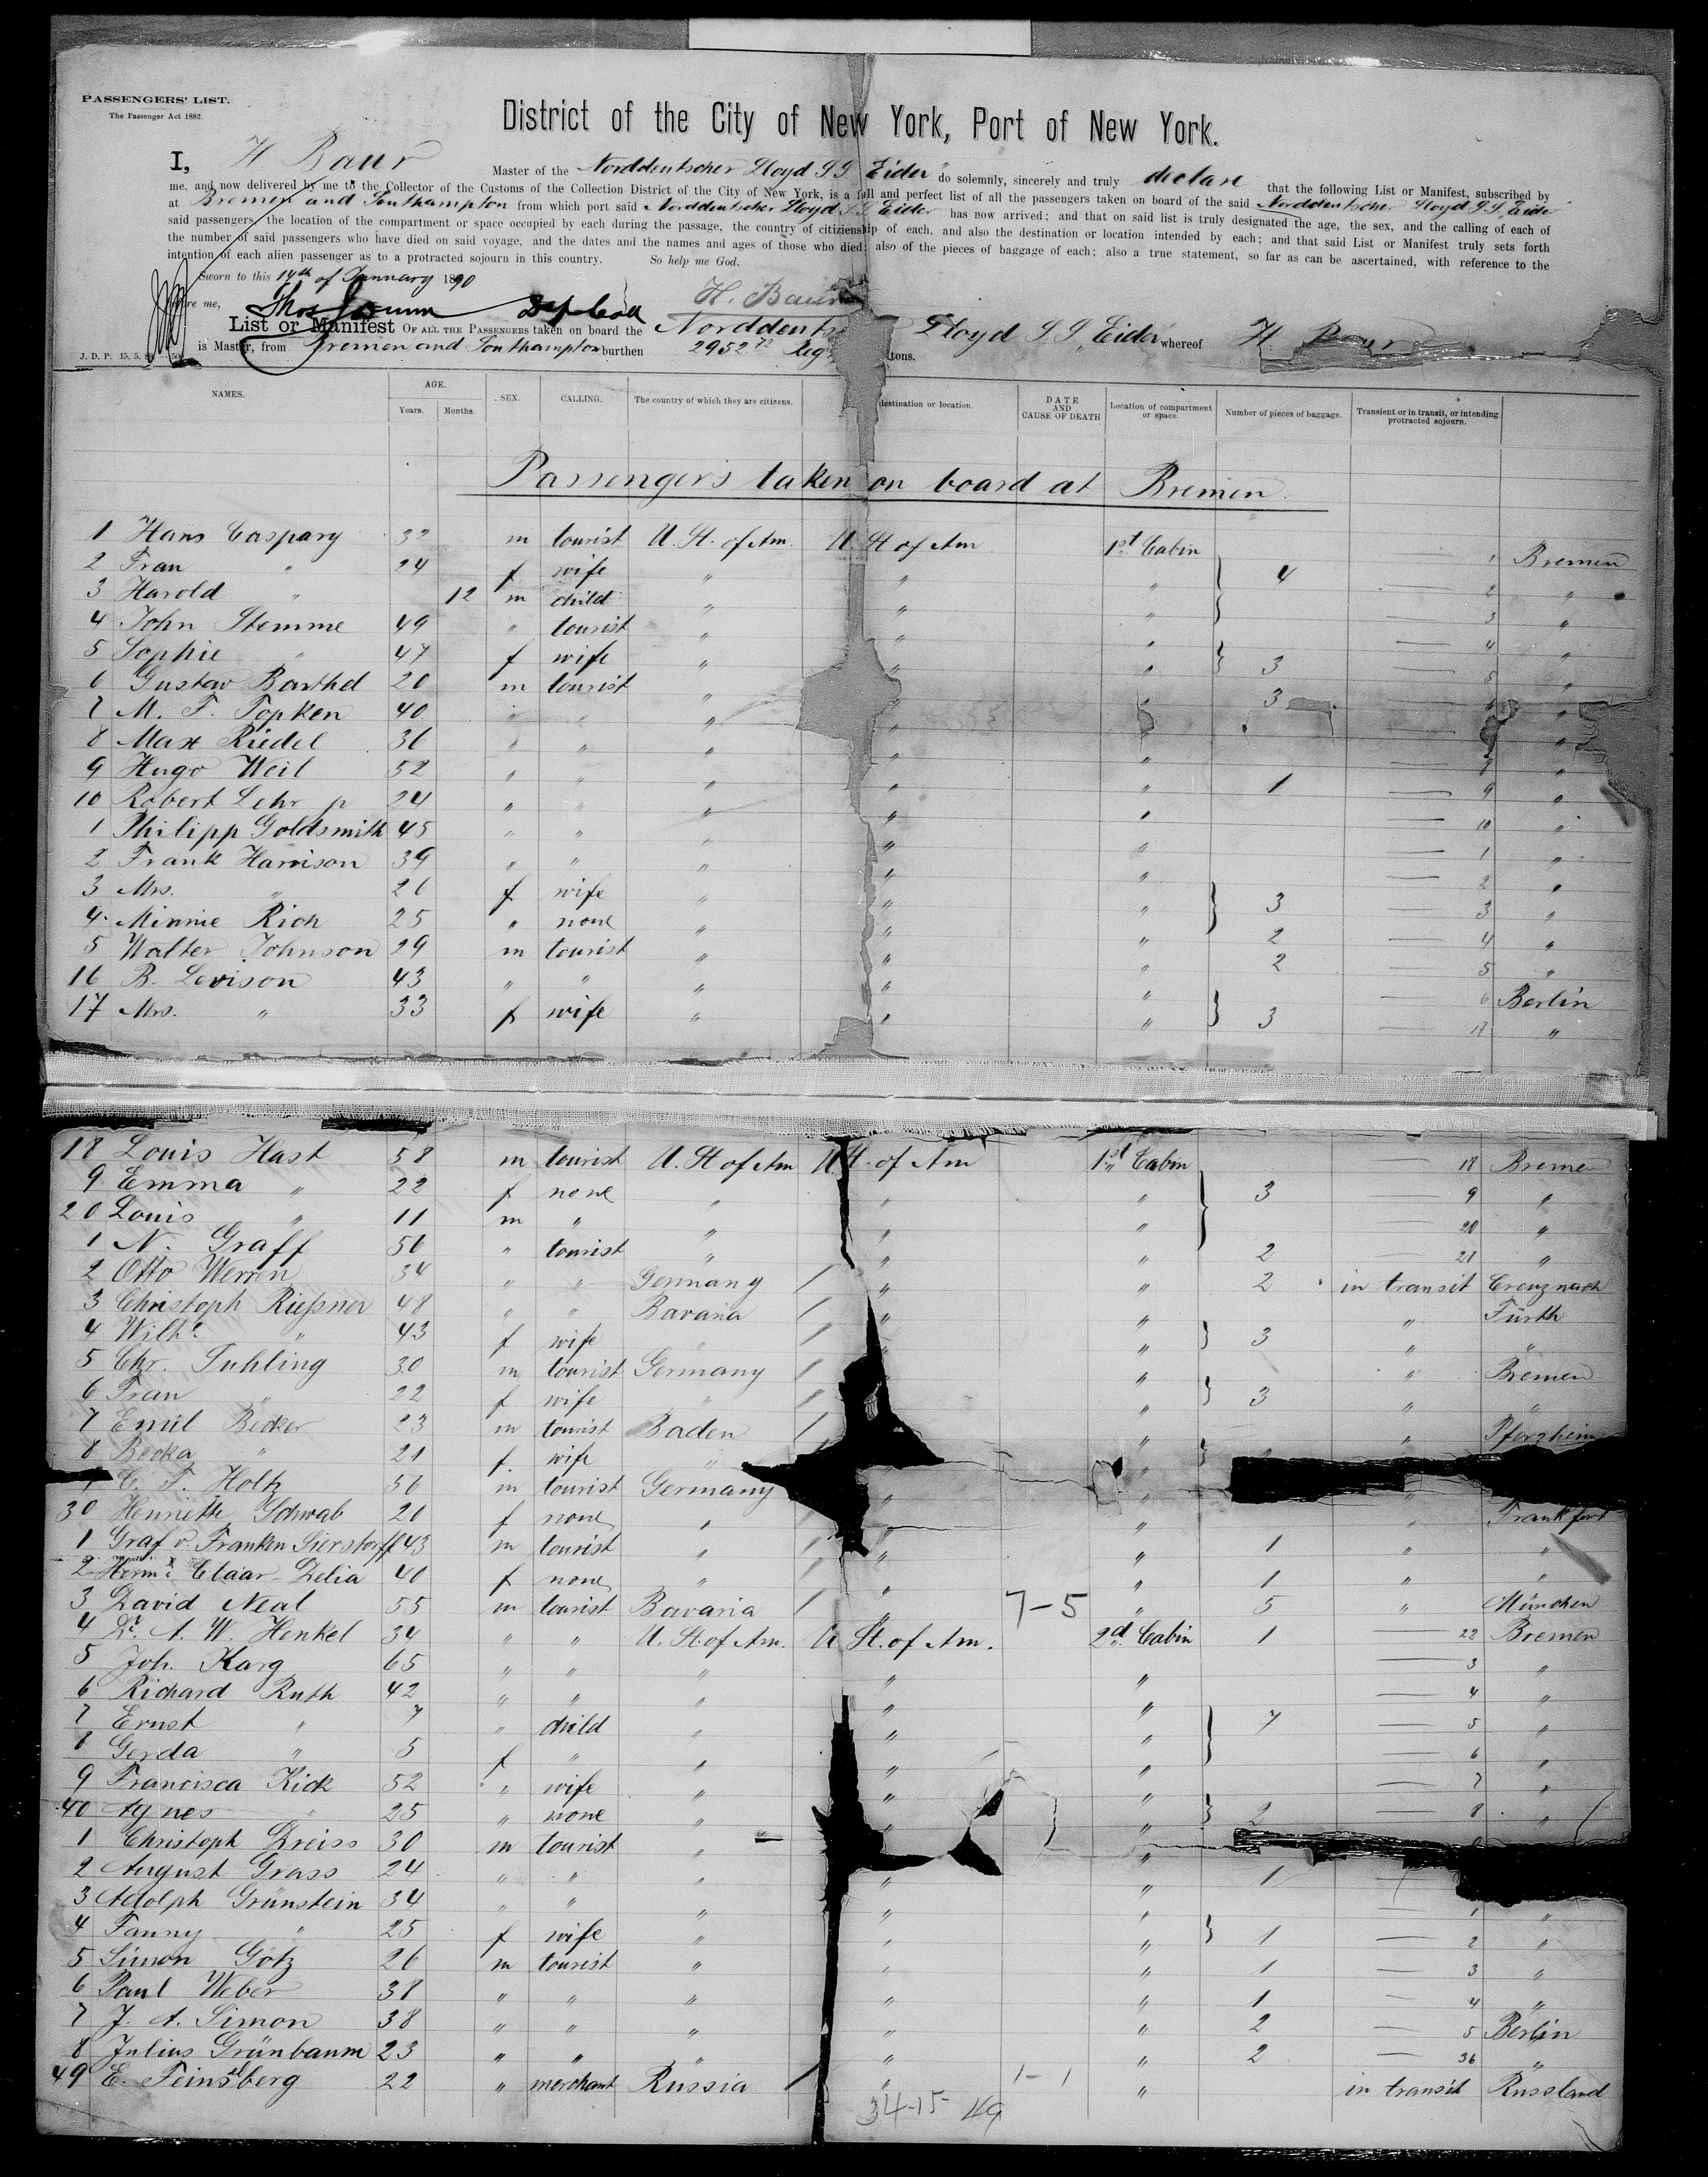 PASSENGERS' LIST.
The Passenger Act 1882.
District of the City of New York, Port of New York.
I, H Baur Master of the Norddeutscher Lloyd S S Eider do solemnly, sincerely and truly declare that the following List or Manifest, subscribed by
me, and now delivered by me to the Collector of the Customs of the Collection District of the City of New York, is a full and perfect list of all the passengers taken on board of the said Norddeutscher Lloyd S.S. Eider
at Bremen and Southampton from which port said Norddeutscher Lloyd S.S Eider has now arrived; and that on said list is truly designated the age, the sex, and the calling of each of
said passengers, the location of the compartment or space occupied by each during the passage, the country of citizenship of each, and also the destination or location intended by each; and that said List or Manifest truly sets forth
the number of said passengers who have died on said voyage, and the dates and the names and ages of those who died; also of the pieces of baggage of each; also a true statement, so far as can be ascertained, with reference to the
intention of each alien passenger as to a protracted sojourn in this country. So help me God.
Sworn to this 14th of January 1890
before me, H. Baur
List or Manifest OF ALL THE PASSENGERS taken on board the Norddeutscher Lloyd S S Eider whereof H Baur
is Master, from Bremen and Southampton burthen 2952 72 Reg tons.
J. D. P. 15. 5.
NAMES. AGE. Years. Months. SEX. CALLING. The country of which they are citizens. destination or location. DATE AND CAUSE OF DEATH Location of compartment or space. Number of pieces of baggage. Transient or in transit, or intending protracted sojourn.
Passengers taken on board at Bremen.
1 Hans Caspary 32 m tourist U. St. of Am. U St of Am 1st Cabin 1 Bremen
2 Frau " 24 f wife " " " 4 2 "
3 Harold " 12 m child " " " 3 "
4 John Stemme 49 " tourist " " " 4 "
5 Sophie " 47 f wife " " " 3 5 "
6 Gustav Barthel 20 m tourist " " " 3 "
7 M. F. Topken 40 " " " " "
8 Max Riedel 36 " " " " " "
9 Hugo Weil 52 " " " " " 1 9 "
10 Robert Lehr p 24 " " " " " 10 "
1 Philipp Goldsmith 45 " " " " " 1 "
2 Frank Harrison 39 " " " " " 2 "
3 Mrs. " 26 f wife " " " 3 3 "
4 Minnie Rich 25 " none " " " 2 4 "
5 Walter Johnson 29 m tourist " " " 2 5 "
16 B. Levison 43 " " " " " 6 Berlin
17 Mrs. " 33 f wife " " " 3 17 "
18 Louis Hast 58 m tourist U. St of Am U St. of Am 1st Cabin 18 Bremen
9 Emma " 22 f none " " " 3 9 "
20 Louis " 11 m " " " " 20 "
1 N. Graff 56 " tourist " " " 2 21 "
2 Otto Werren 34 " " Germany / " " 2 in transit Creuznach
3 Christoph Rießner 48 " " Bavaria / " " " Fürth
4 Wilhe " 43 f wife " / " " 3 " "
5 Chr. Suhling 30 m tourist Germany / " " Bremen
6 Frau " 22 f wife " / " 3 " "
7 Emil Becker 23 m tourist Baden / " " Pforzheim
8 Becka " 21 f. wife " "
C. F. Holtz 56 m tourist Germany " "
30 Henriette Schwab 20 f none " / " " " Frankfurt
1 Graf v. Franken Sierstorff 43 m tourist " / " " 1 " "
2 Hermne Claar-Delia 40 f none " / " " 1 " "
3 David Neal 55 m tourist Bavaria / " 7-5 " 5 " München
4 Dr. A. W. Henkel 34 " " U. St. of Am. U St. of Am. 2d Cabin 1 22 Bremen
5 Joh. Karg 65 " " " " " 3 "
6 Richard Ruth 42 " " " " " 4 "
7 Ernst " 7 " child " " " 7 5 "
8 Gerda " 5 f " " " " 6 "
9 Francisca Kick 52 " wife " " " 7 "
40 Agnes " 25 " none " " " 2 8 "
1 Christoph Dreiss 30 m tourist " "
2 August Grass 24 " " " " " 1
3 Adolph Grünstein 34 " " " " " 1 "
4 Fanny " 25 f wife " " " 1 2 "
5 Simon Götz 26 m tourist " " " 1 3 "
6 Paul Weber 38 " " " " " 1 4 "
7 J. A. Simon 38 " " " " " 2 5 Berlin
8 Julius Grünbaum 23 " " " " " 2 36 "
49 E. Feinsberg 22 " merchant Russia / " 1-1 " in transit Russland
34-15- 49